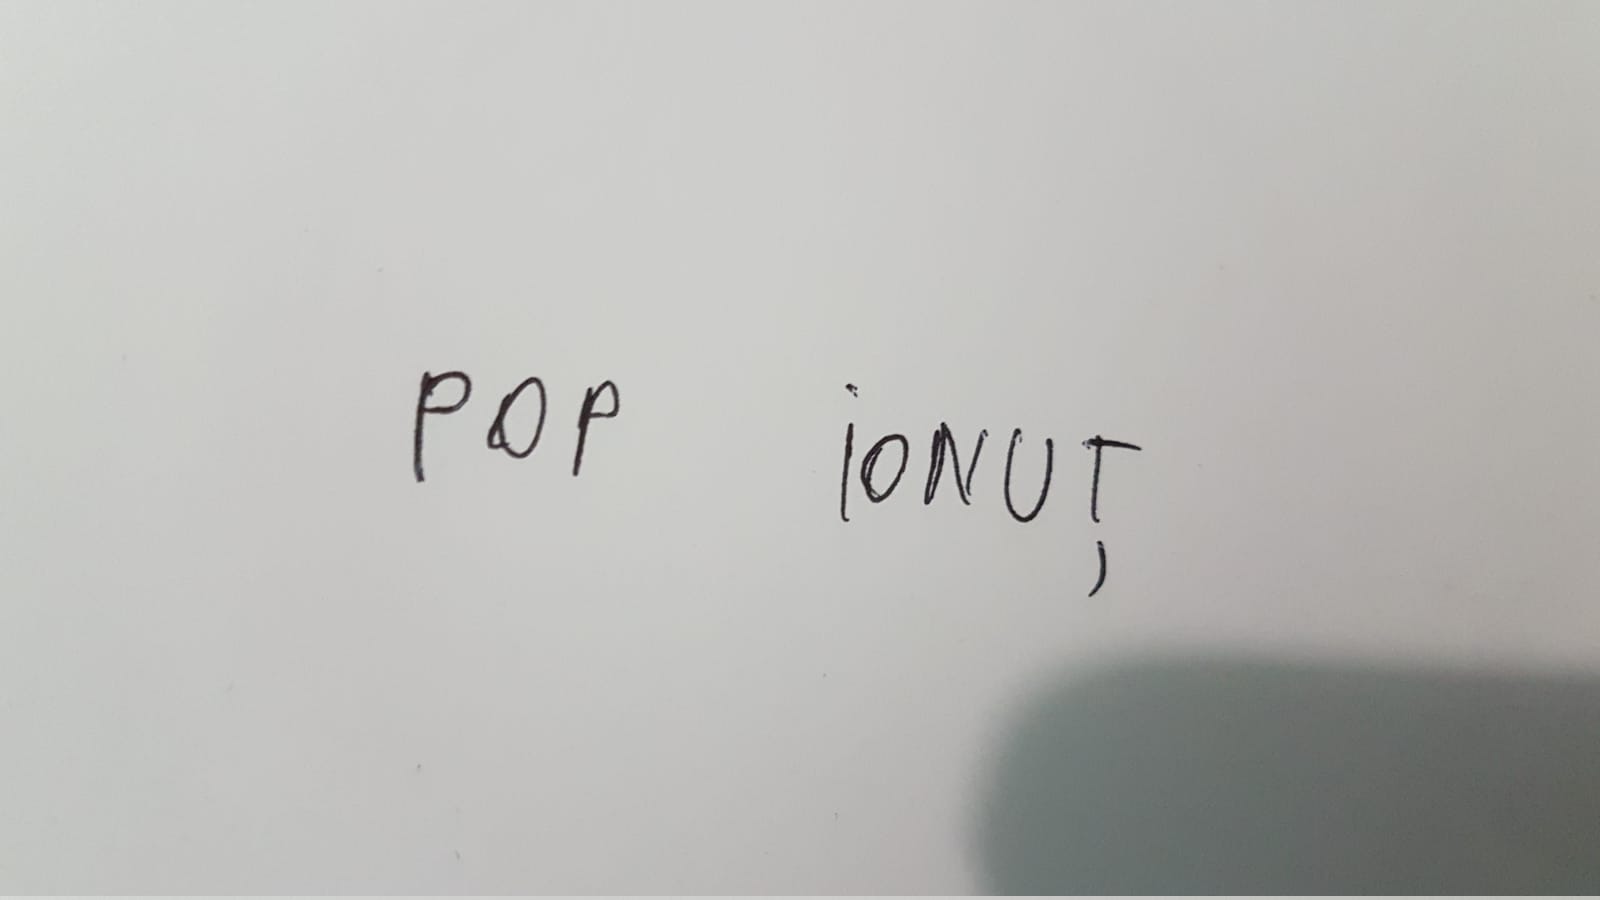 POP iONUȚ